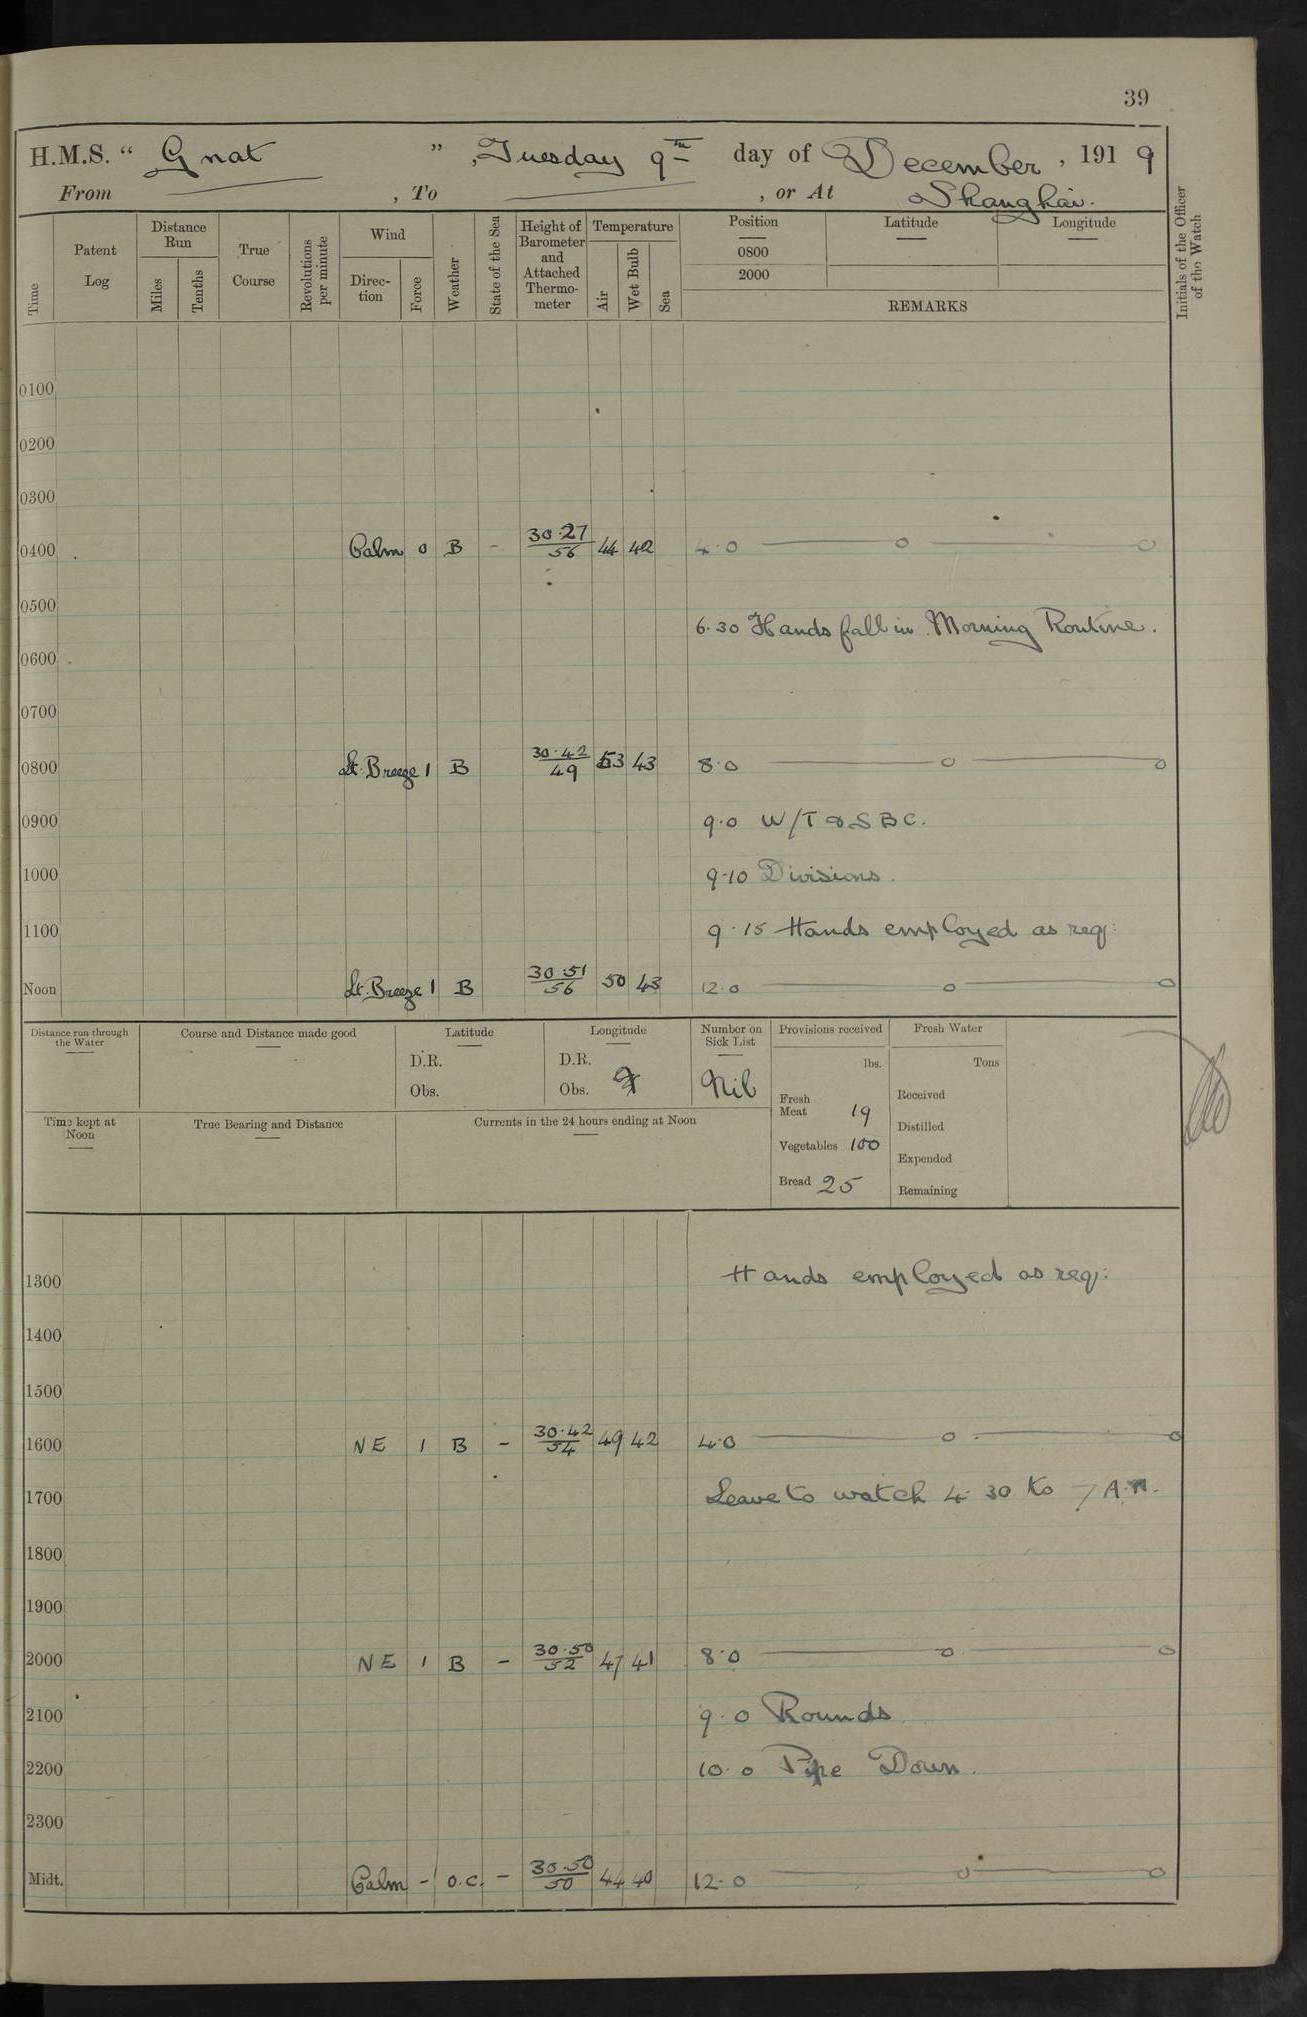 39
H.M.S. “ Gnat ” , Tuesday 9th day of December , 1919
From , To , or At Shanghai.
Time
Patent Log
Distance Run
Miles
Tenths
True Course
Revolutions per minute
Wind
Direction
Force
Weather
State of the Sea
Height of Barometer and Attached Thermometer
Temperature
Air
Wet Bulb
Sea
Position
0800
2000
Latitude
Longitude
REMARKS
Initials of the Officer of the Watch
0100
0200
0300
0400 Calm 0 B - 30.27/56 44 42 4.0 o o
0500
6.30 Hands fall in. Morning Routine.
0600
0700
0800 Lt. Breeze 1 B 30.42/49 53 43 8.0 o o
0900 9.0 W/T & S B C.
1000 9.10 Divisions.
1100 9.15 Hands employed as req:
Noon Lt. Breeze 1 B 30.51/56 50 43 12.0 o o
Distance run through the Water
Course and Distance made good
Latitude
D.R.
Obs.
Longitude
D.R.
Obs.
Number on Sick List
Nil
Provisions received
lbs.
Fresh Meat 19
Vegetables 100
Bread 25
Fresh Water
Tons
Received
Distilled
Expended
Remaining
Time kept at Noon
True Bearing and Distance
Currents in the 24 hours ending at Noon
1300 Hands employed as req:
1400
1500
1600 NE 1 B - 30.42/54 49 42 4.0 o o
1700 Leave to watch 4.30 to 7 A.M.
1800
1900
2000 NE 1 B - 30.50/52 47 41 8.0 o o
2100 9.0 Rounds
2200 10.0 Pipe Down.
2300
Midt. Calm - o.c. - 30.50/50 44 40 12.0 o o